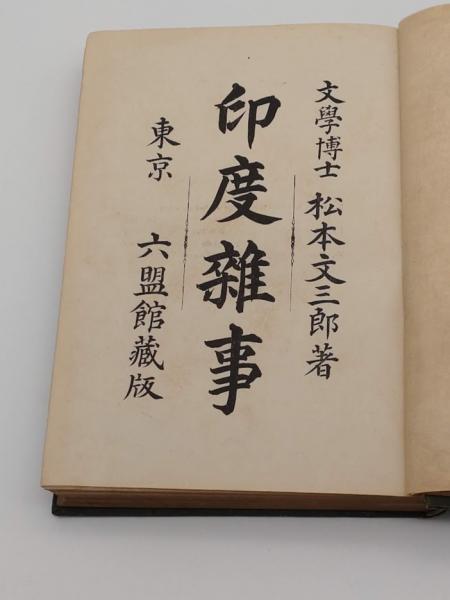 文學博士 松本文三郎著
印度雜事
東京 六盟館藏版